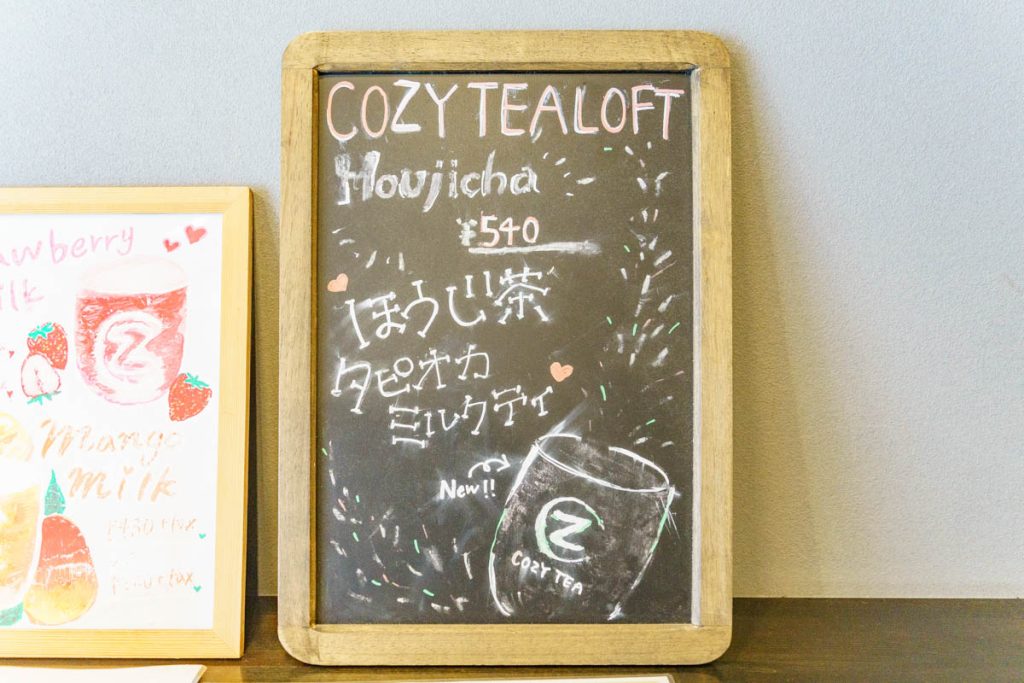 COZY TEA LOFT
Houjicha
¥540
ほうじ茶
タピオカ
ミルクティ
New!!
Z
COZY TEA
awberry
ilk
Z
Mango
Milk
¥430+tax